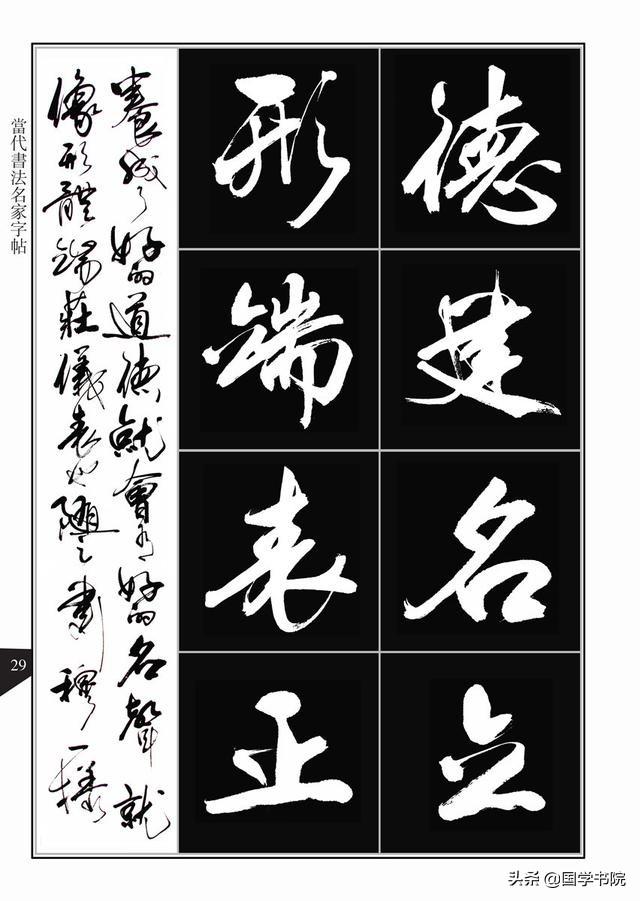 德建名立
形端表正
養成了好的道德就會有好的名聲就
像形體端莊儀表也隨之肅穆一樣
當代書法名家字帖
29
头条 @国学书院